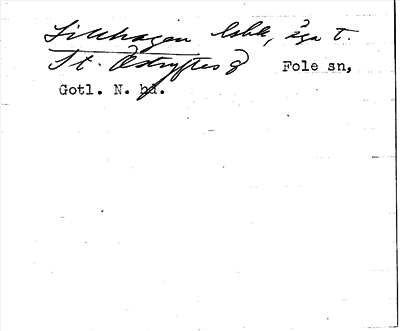 Lillhagen lshk, äga t.
St. Östryftes 8 Fole sn,
Gotl. N. hd.